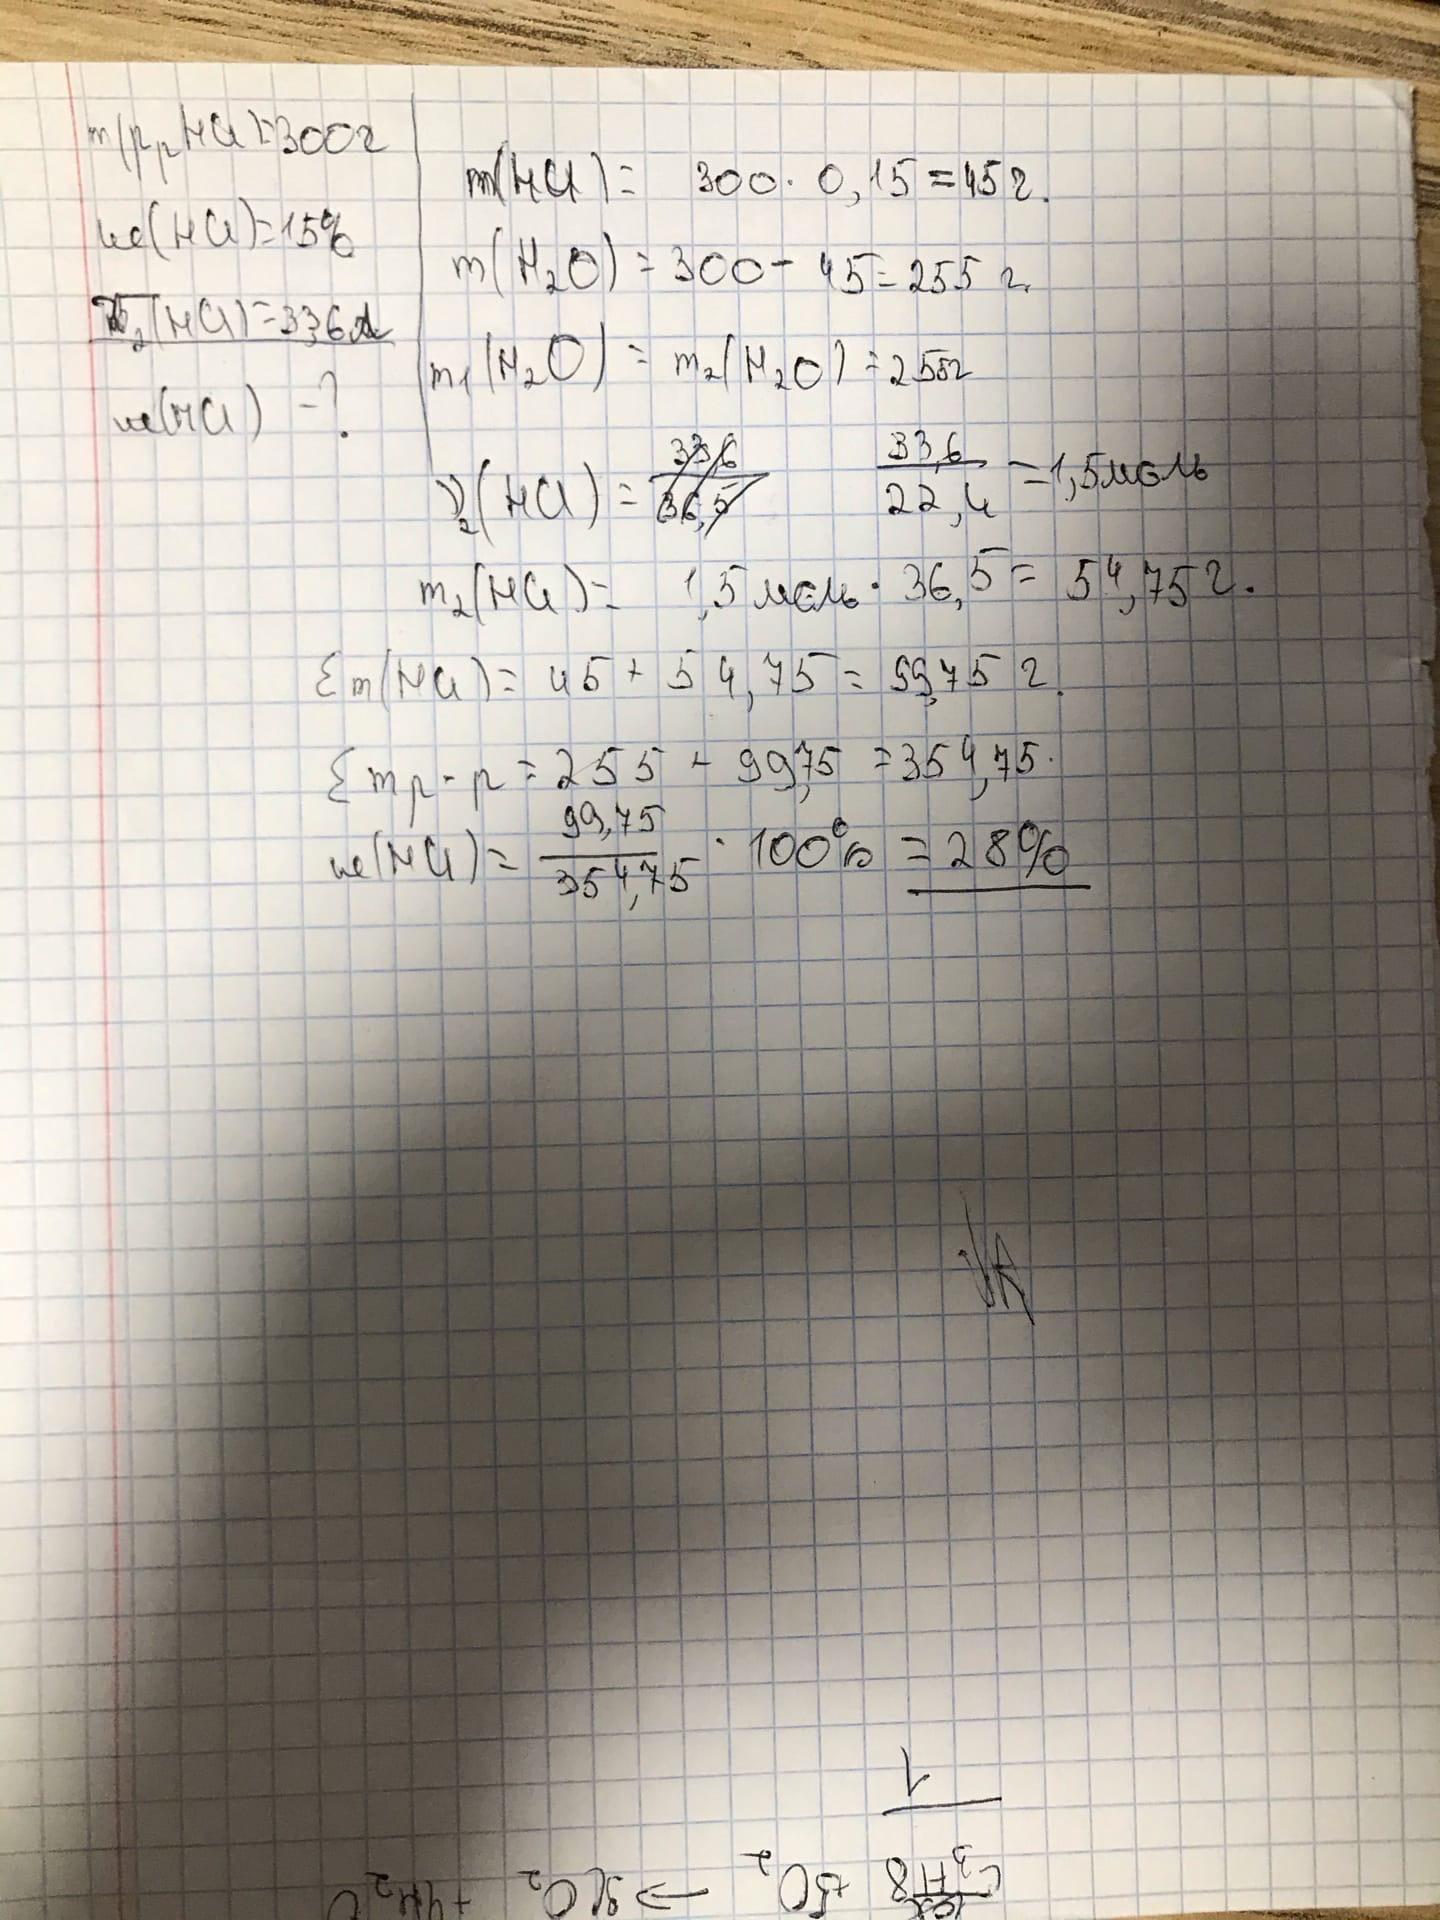 m(р-р HCl)=300г
ω(HCl)=15%
V₂(HCl)=33,6л
ω(HCl) - ?
m(HCl) = 300 · 0,15 = 45г.
m(H₂O) = 300 - 45 = 255 г.
m₁(H₂O) = m₂(H₂O) = 255г
ν₂(HCl) = 33,6/36,5 33,6/22,4 = 1,5моль
m₂(HCl) = 1,5 моль · 36,5 = 54,75 г.
Σm(HCl) = 45 + 54,75 = 99,75 г.
Σmр-р = 255 + 99,75 = 354,75.
ω(HCl) = 99,75/354,75 · 100% = 28%
1
C₃H8 + 5O₂ → 3CO₂ + 4H₂O